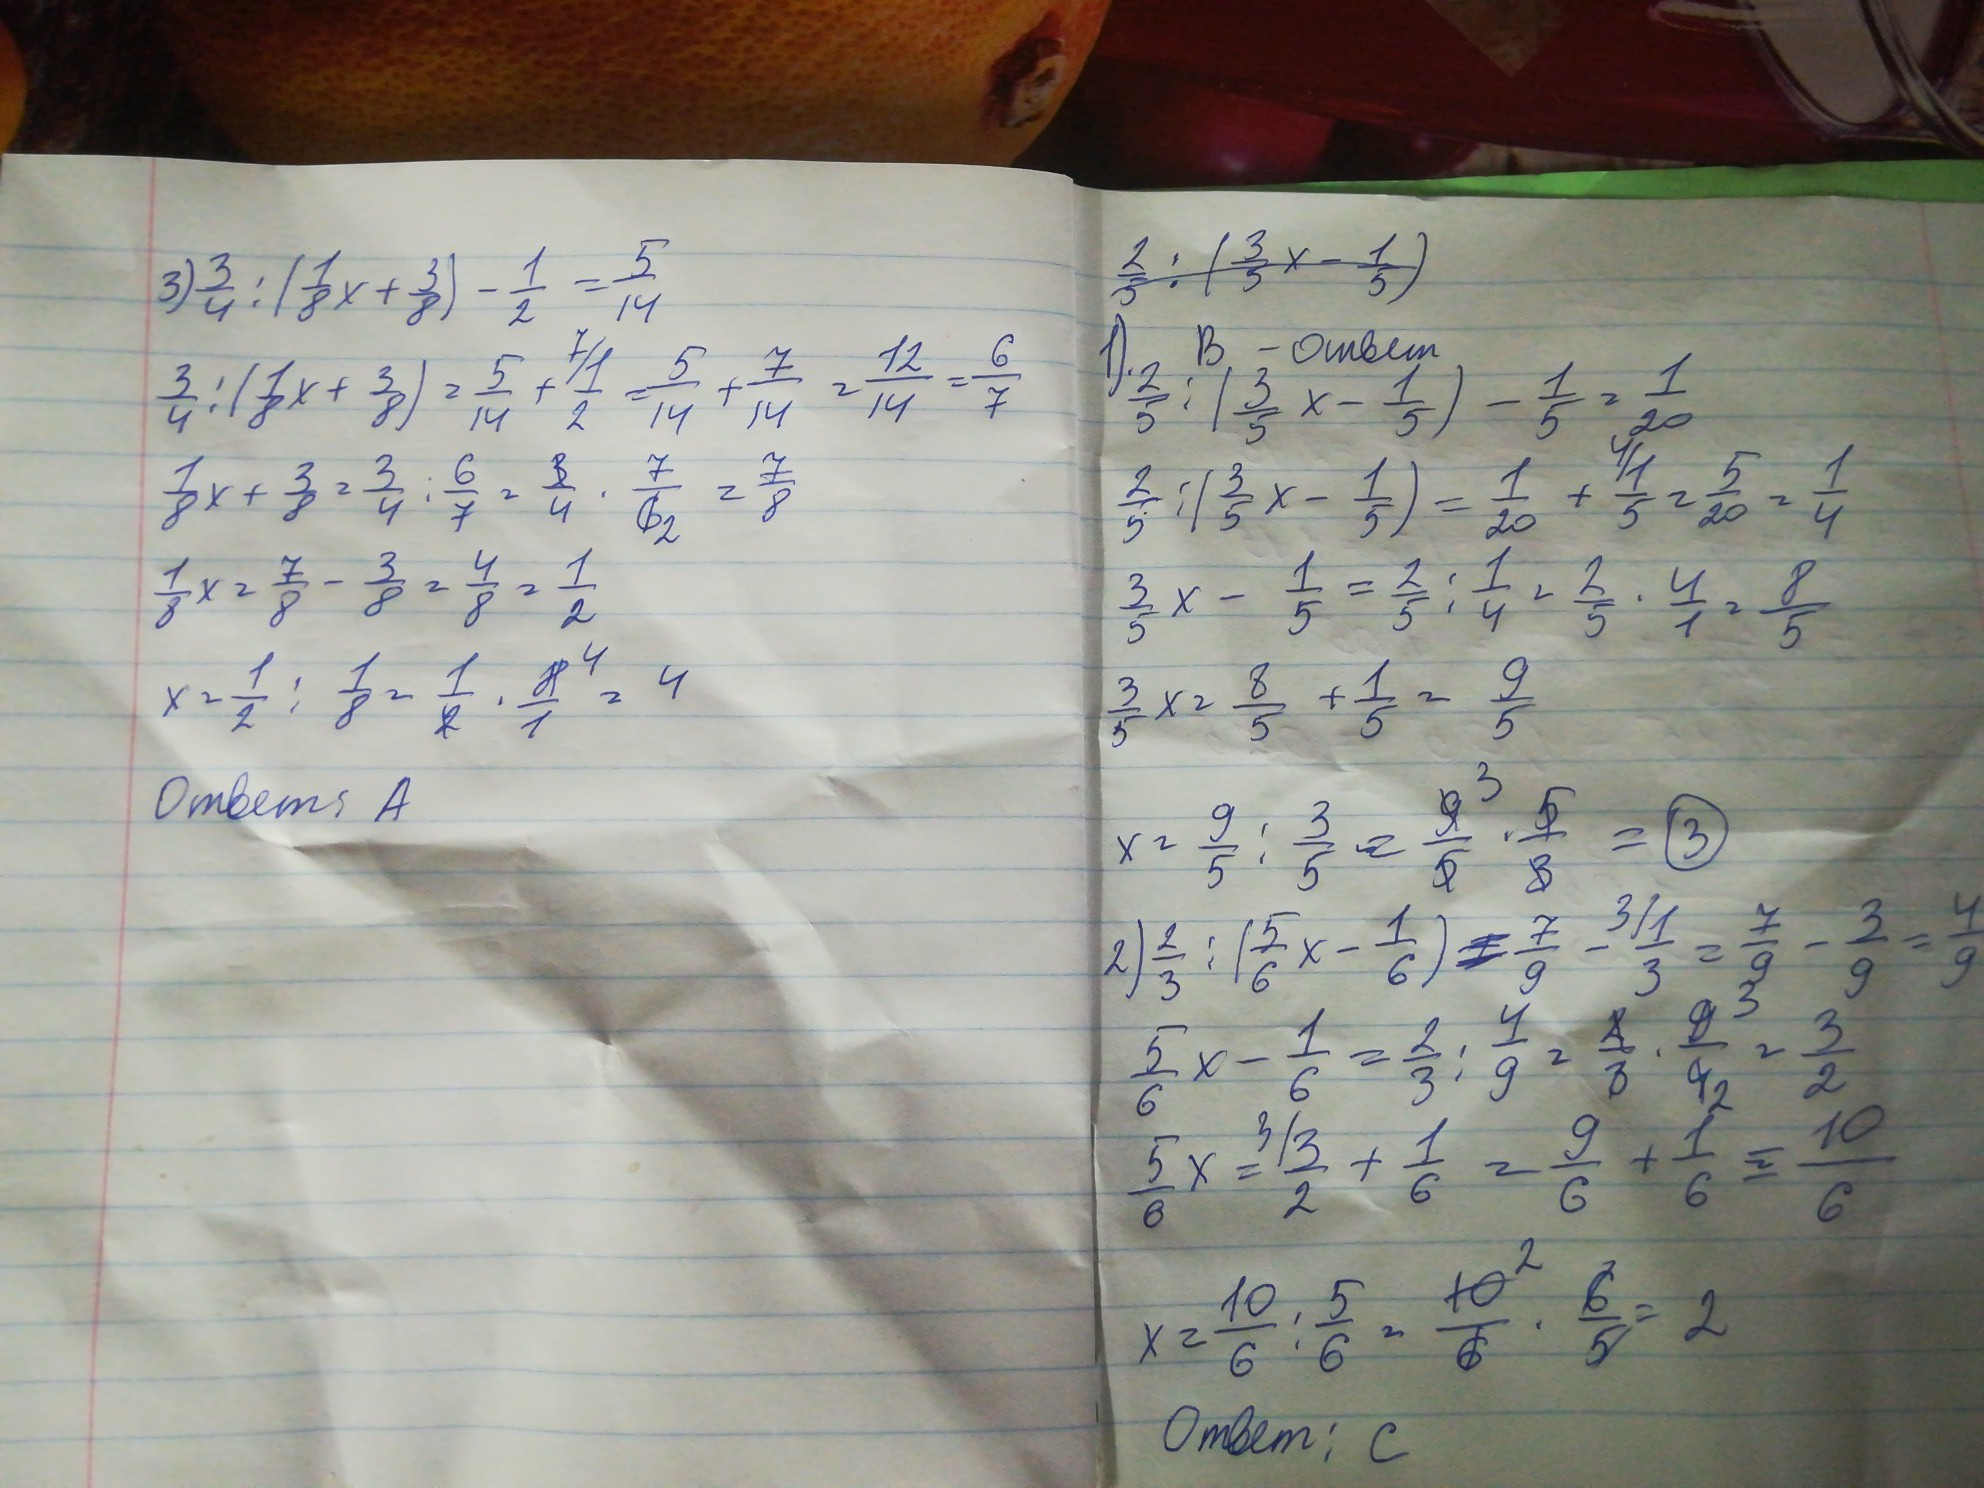 3) 3/4 : (1/8 x + 3/8) - 1/2 = 5/14
3/4 : (1/8 x + 3/8) = 5/14 + 7/ 1/2 = 5/14 + 7/14 = 12/14 = 6/7
1/8 x + 3/8 = 3/4 : 6/7 = 3/4 · 7/6 2 = 7/8
1/8 x = 7/8 - 3/8 = 4/8 = 1/2
x = 1/2 : 1/8 = 1/2 · 8/1 4 = 4
Ответ: А
2/5 : (3/5 x - 1/5)
1). В - ответ
2/5 : (3/5 x - 1/5) - 1/5 = 1/20
2/5 : (3/5 x - 1/5) = 1/20 + 4/ 1/5 = 5/20 = 1/4
3/5 x - 1/5 = 2/5 : 1/4 = 2/5 · 4/1 = 8/5
3/5 x = 8/5 + 1/5 = 9/5
x = 9/5 : 3/5 = 9/5 3 · 5/3 = 3
2) 2/3 : (5/6 x - 1/6) = 7/9 - 3/ 1/3 = 7/9 - 3/9 = 4/9
5/6 x - 1/6 = 2/3 : 4/9 = 2/3 · 9/4 3 2 = 3/2
5/6 x = 3/ 3/2 + 1/6 = 9/6 + 1/6 = 10/6
x = 10/6 : 5/6 = 10/6 2 · 6/5 = 2
Ответ: С